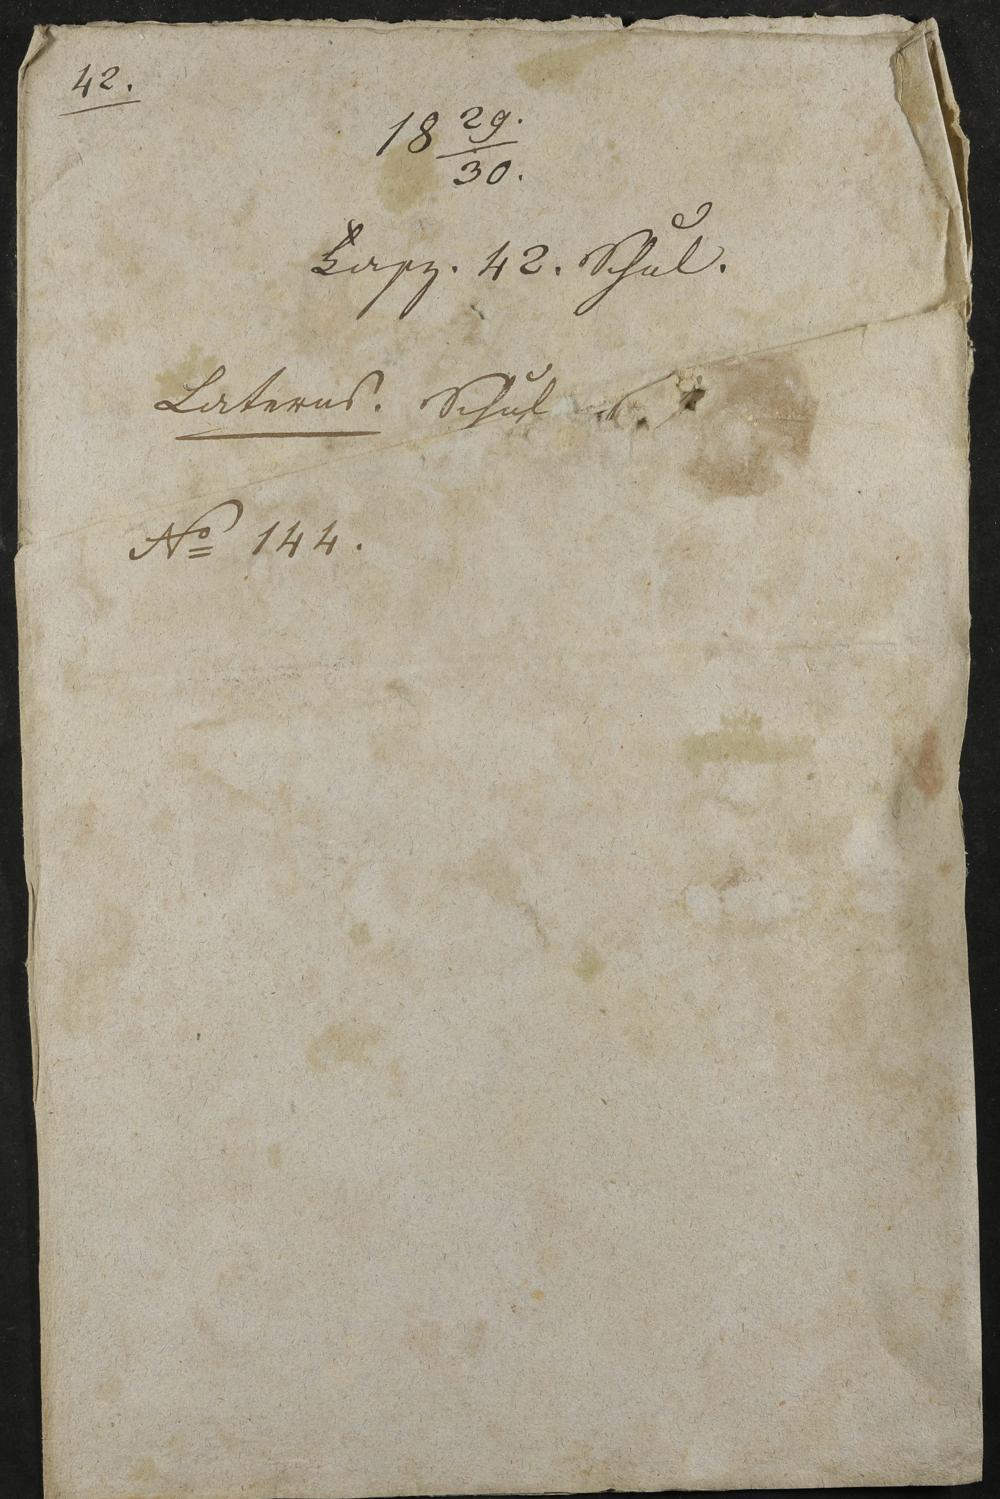 42.
18 29./30.
Fasz. 42. Schul.
Laterns. Schul
No 144.